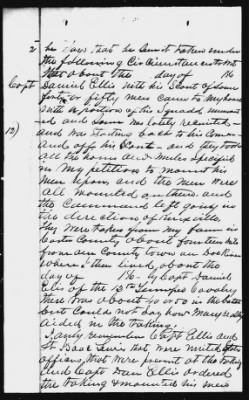 2 he says that he was taken under
the following Circumstances to wit
That about the day of 186
Capt Daniel Ellis with his Scout of some
forty or fifty men Came to my house
with a portion of his Squad
ed and Some
12) and was Starting back to his Command
and off his Scout - and they took
All the horses and mules Specified
in My petition to mount his
Men upon and the men were
all mounted on them and
the Command left going in
the direction of Knoxville.
They were taken from my farm in
Carter County about fourteen miles
from our County town
where I then lived about the
day of 186 by Capt Daniel
Ellis of the 13th Tennessee Cavalry
there was about 40 or 50 in the
but Could not Say how Many
aided in the taking.
I only remember Capt Ellis and
Lt Isaac Lewis that were United States
officers, that were present at the taking
and Capt Dan Ellis ordered
the taking & mounted his men